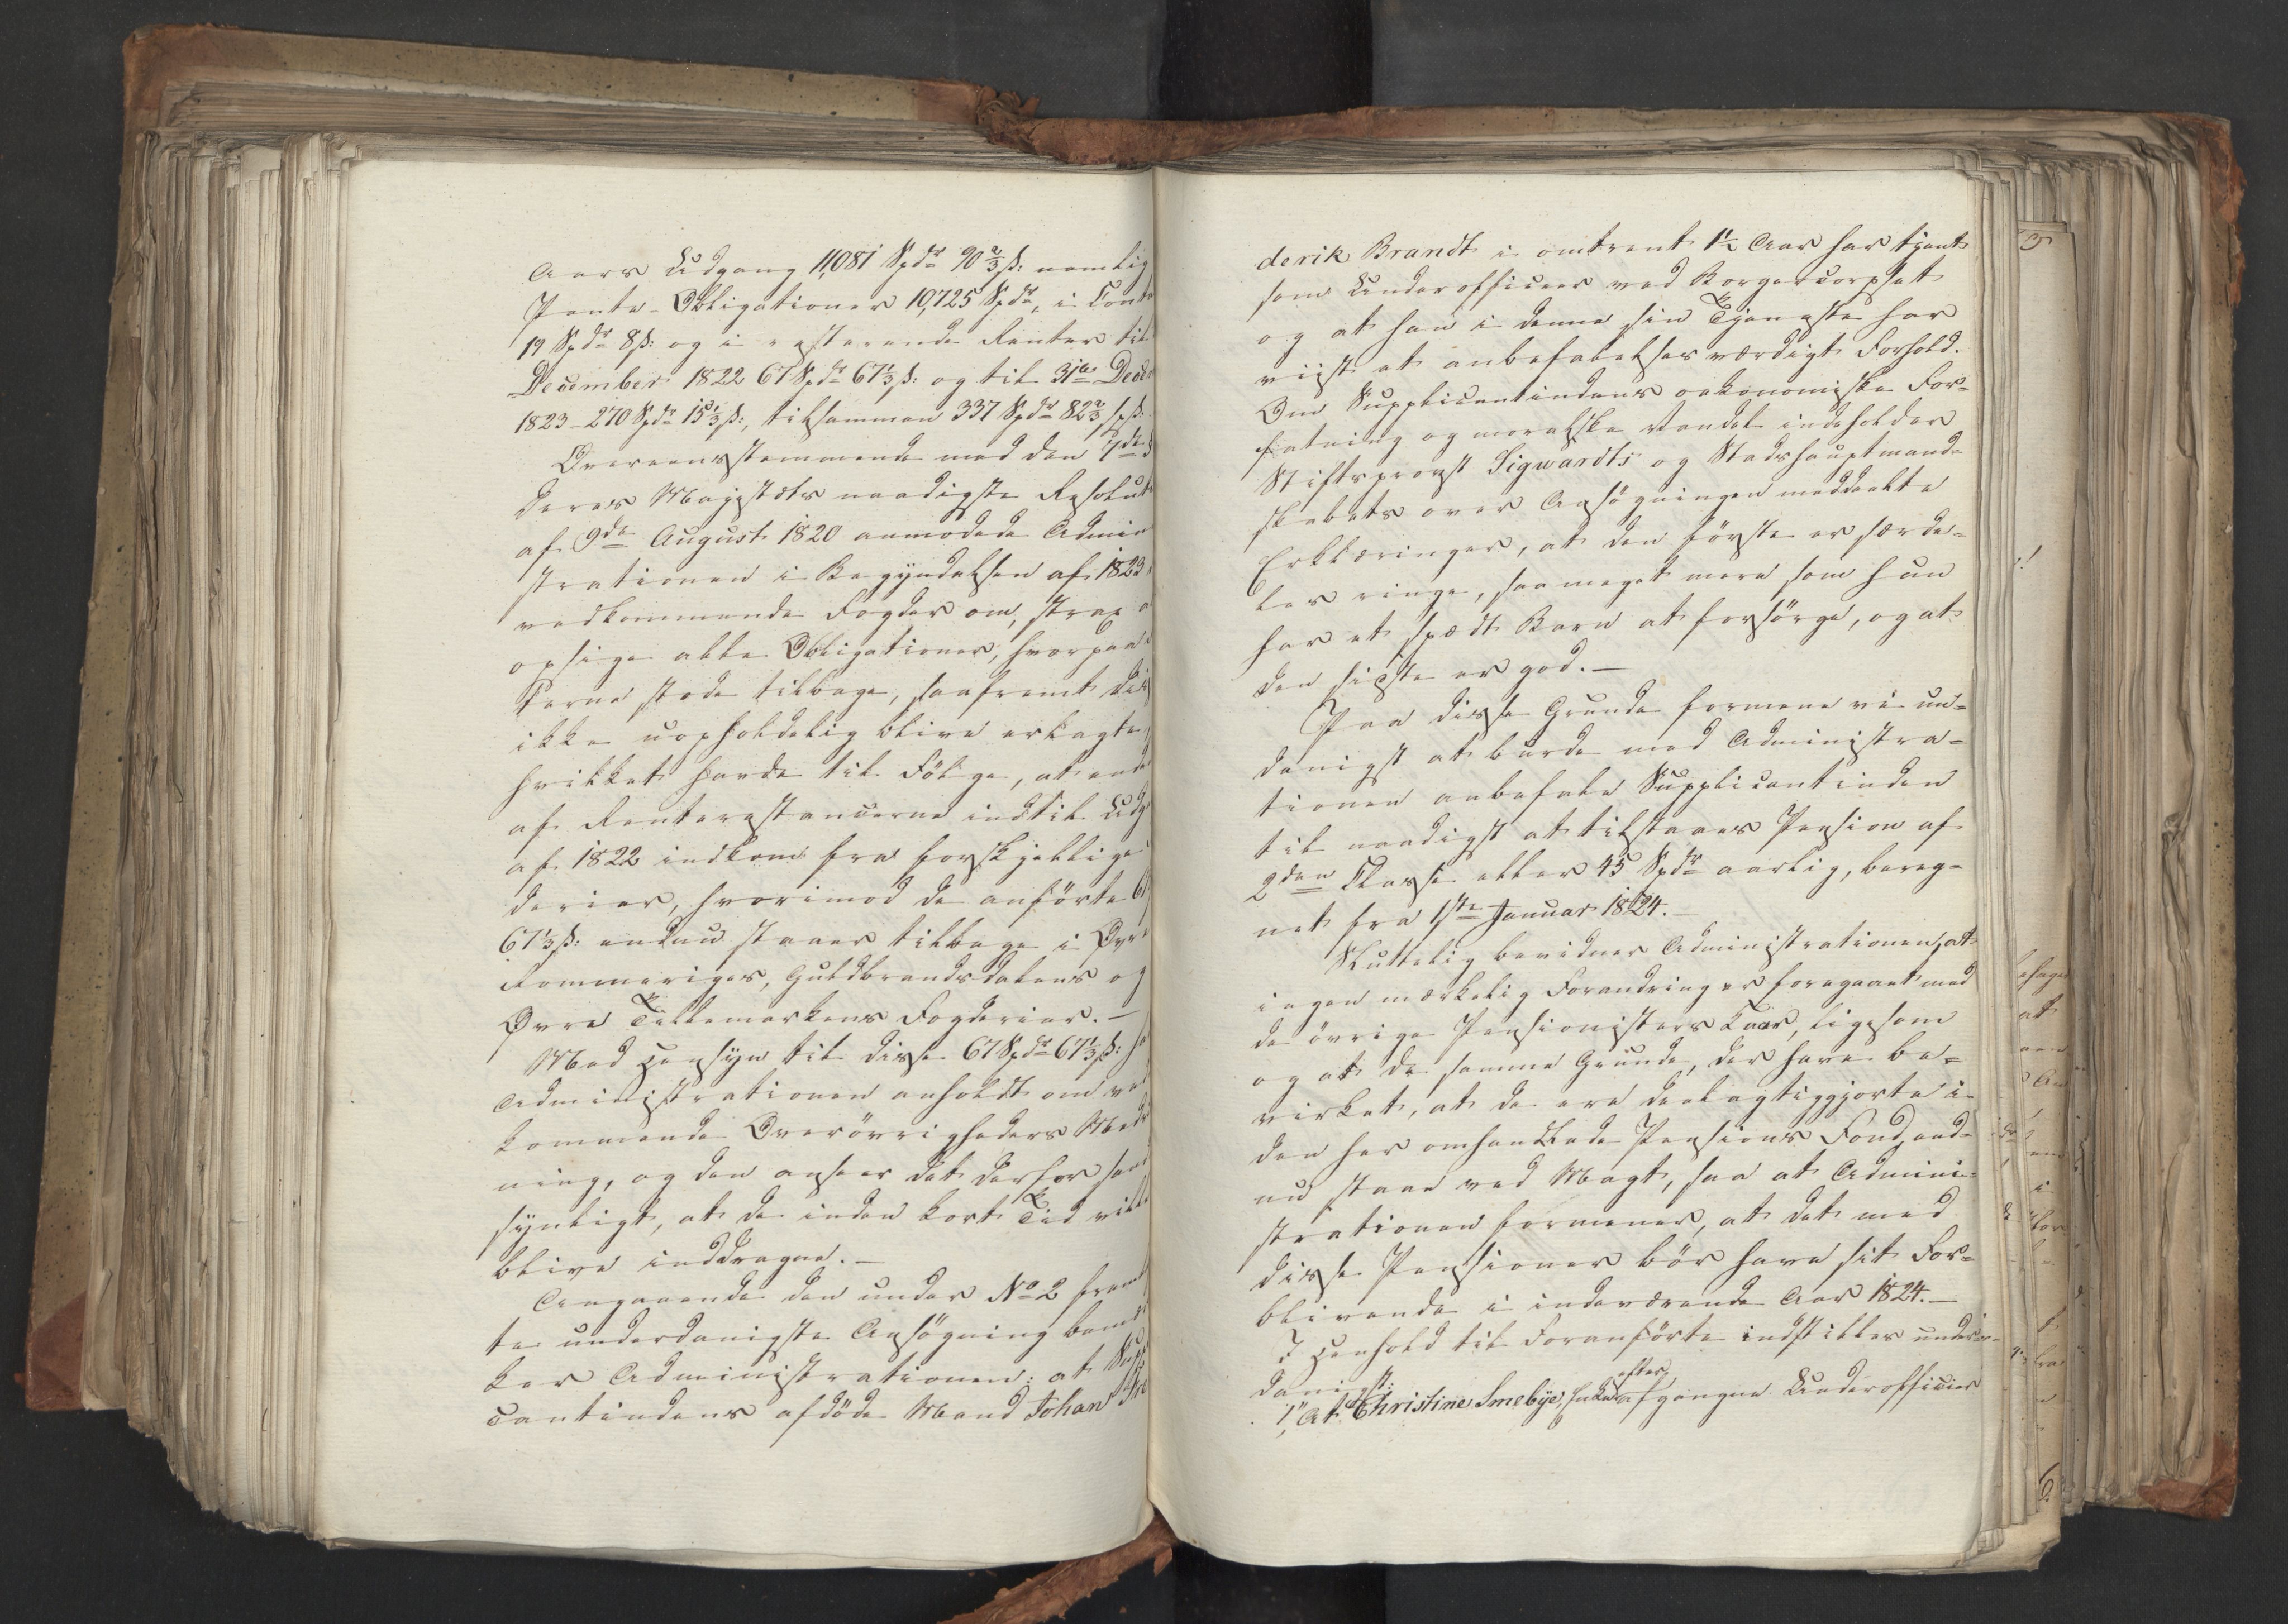 Aars Udgang 11,081 Spdr 90 2/3 ß: nemlig
Pante-Obligationer 10,725 Spdr, i Conta
19 Spdr 8 ß: og i resterende Renter til
December 1822 67 Spdr 67 1/3 ß: og til 31te Decem
1823 - 270 Spdr 15 1/3 ß:, tilsammen 337 Spdr 82 2/3 sp ß:
Overeensstemmende med den 7de
Deres Majestæts naadigste Resolut
af 9de August 1820 anmodede Admin
strationen i Begyndelsen af 1823
vedkommende Fogder om, strax a
opsige alle Obligationer, hvorpaa
terne stode tilbage, saafremt dis
ikke uopholdelig blive erlagte,
hvilket havde til Fölge, at ende
af Renterestancerne indtil Udg
af 1822 indkom fra forskjellige
derier, hvorimod de anförte 67
67 1/3 ß: endnu staaer tilbage i Øvre
Rommeriges, Guldbrandsdalens og
Øvre Tellemarkens Fogderier. —
Med Hensyn til disse 67 Spdr 67 1/3 ß: ha
Administrationen anholdt om ved
kommende Overövrigheders Med
ning, og den anseer det derfor san
synligt, at de inden kort Tid ville
blive inddragne. —
Angaaende den under No 2 frem
te underdanigste Ansögning bemæ
ker Administrationen: at Supp
cantindens afdöde Mand Johan Fre
derik Brandt i omtrent 1 1/2 Aar har tjent
som Underofficeer ved Borgercorpset
og at han i denne sin Tjeneste har
viist et anbefalelsesværdigt Forhold.
Om Supplicantindens oekonomiske For=
fatning og moralske Vandel indeholder
Stiftsprovst Sigwardts og Stadshauptmand=
skabets over Ansögningen meddeelte
Erklæringer, at den förste er særde=
les ringe, saa meget mere som hun
har et spædt Barn at forsörge, og at
den sidste er god. —
Paa disse Grunde formene vi un=
danigst at burde med Administra=
tionen anbefale Supplicantinden
til naadigst at tilstaaes Pension af
2den Classe eller 45 Spdr aarlig, bereg=
net fra 1ste Januar 1824. —
Sluttelig bevidner Administrationen, at
ingen mærkelig Forandring er foregaaet med
de övrige Pensionisters Kaar, ligesom
og at de samme Grunde, der have be=
virket, at de ere deelagtiggjorte i
den her omhandlede Pensions Fond, end=
nu staae ved Magt, saa at Admini=
strationen formener, at det med
disse Pensioner bör have sit For=
blivende i indeværende Aar 1824. —
I Henhold til Foranförte indstilles under=
danigst:
1, At Christine Smebye, Enke efter afgangne Underofficeer